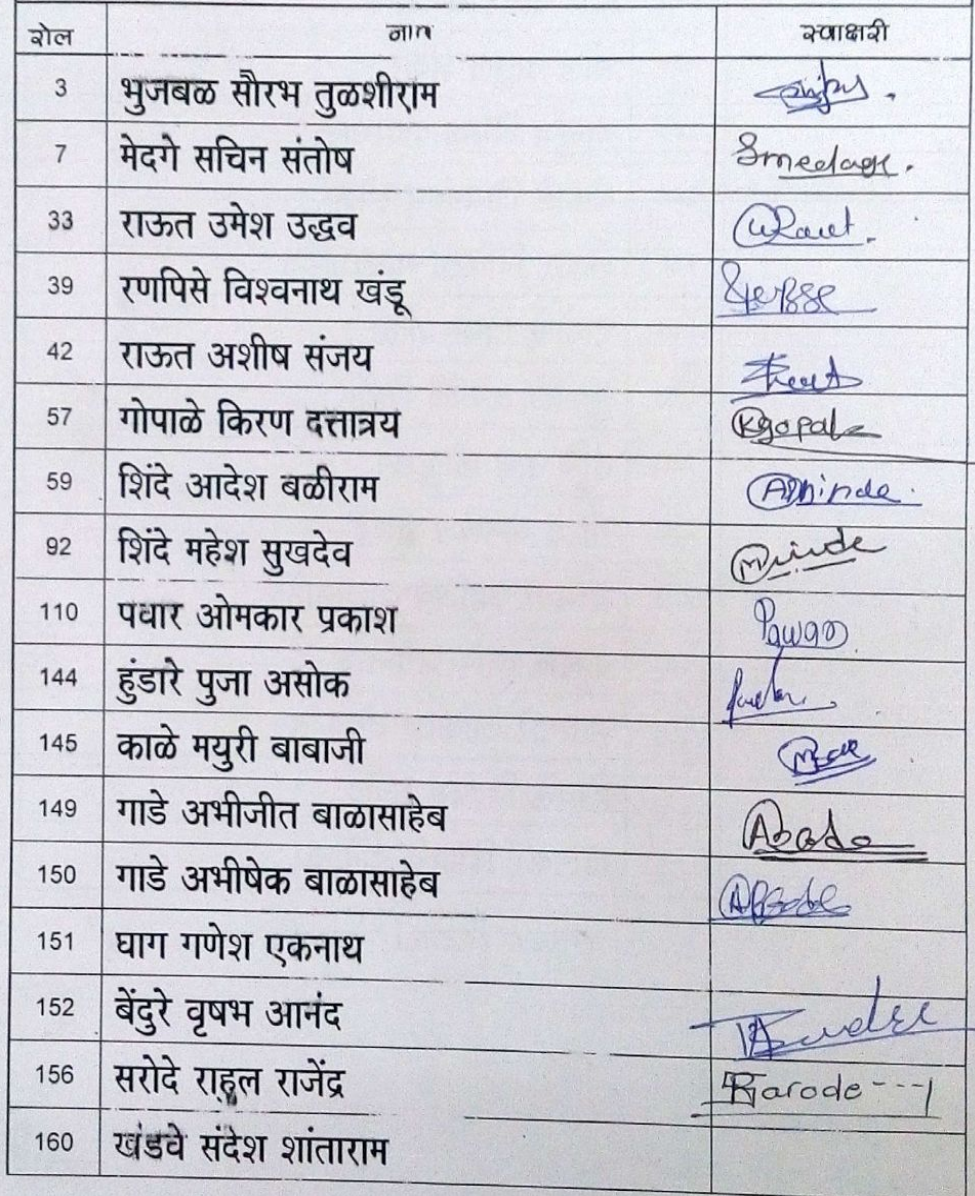 रोल नाव स्वाक्षरी
3 भुजबळ सौरभ तुळशीराम
7 मेदगे सचिन संतोष Smedage.
33 राऊत उमेश उद्धव URaut.
39 रणपिसे विश्वनाथ खंडू
42 राऊत अशीष संजय
57 गोपाळे किरण दत्तात्रय Kgopale
59 शिंदे आदेश बळीराम AShinde.
92 शिंदे महेश सुखदेव
110 पवार ओमकार प्रकाश Pawar
144 हुंडारे पुजा असोक
145 काळे मयुरी बाबाजी
149 गाडे अभीजीत बाळासाहेब
150 गाडे अभीषेक बाळासाहेब
151 घाग गणेश एकनाथ
152 बेंदुरे वृषभ आनंद
156 सरोदे राहूल राजेंद्र
160 खंडवे संदेश शांताराम